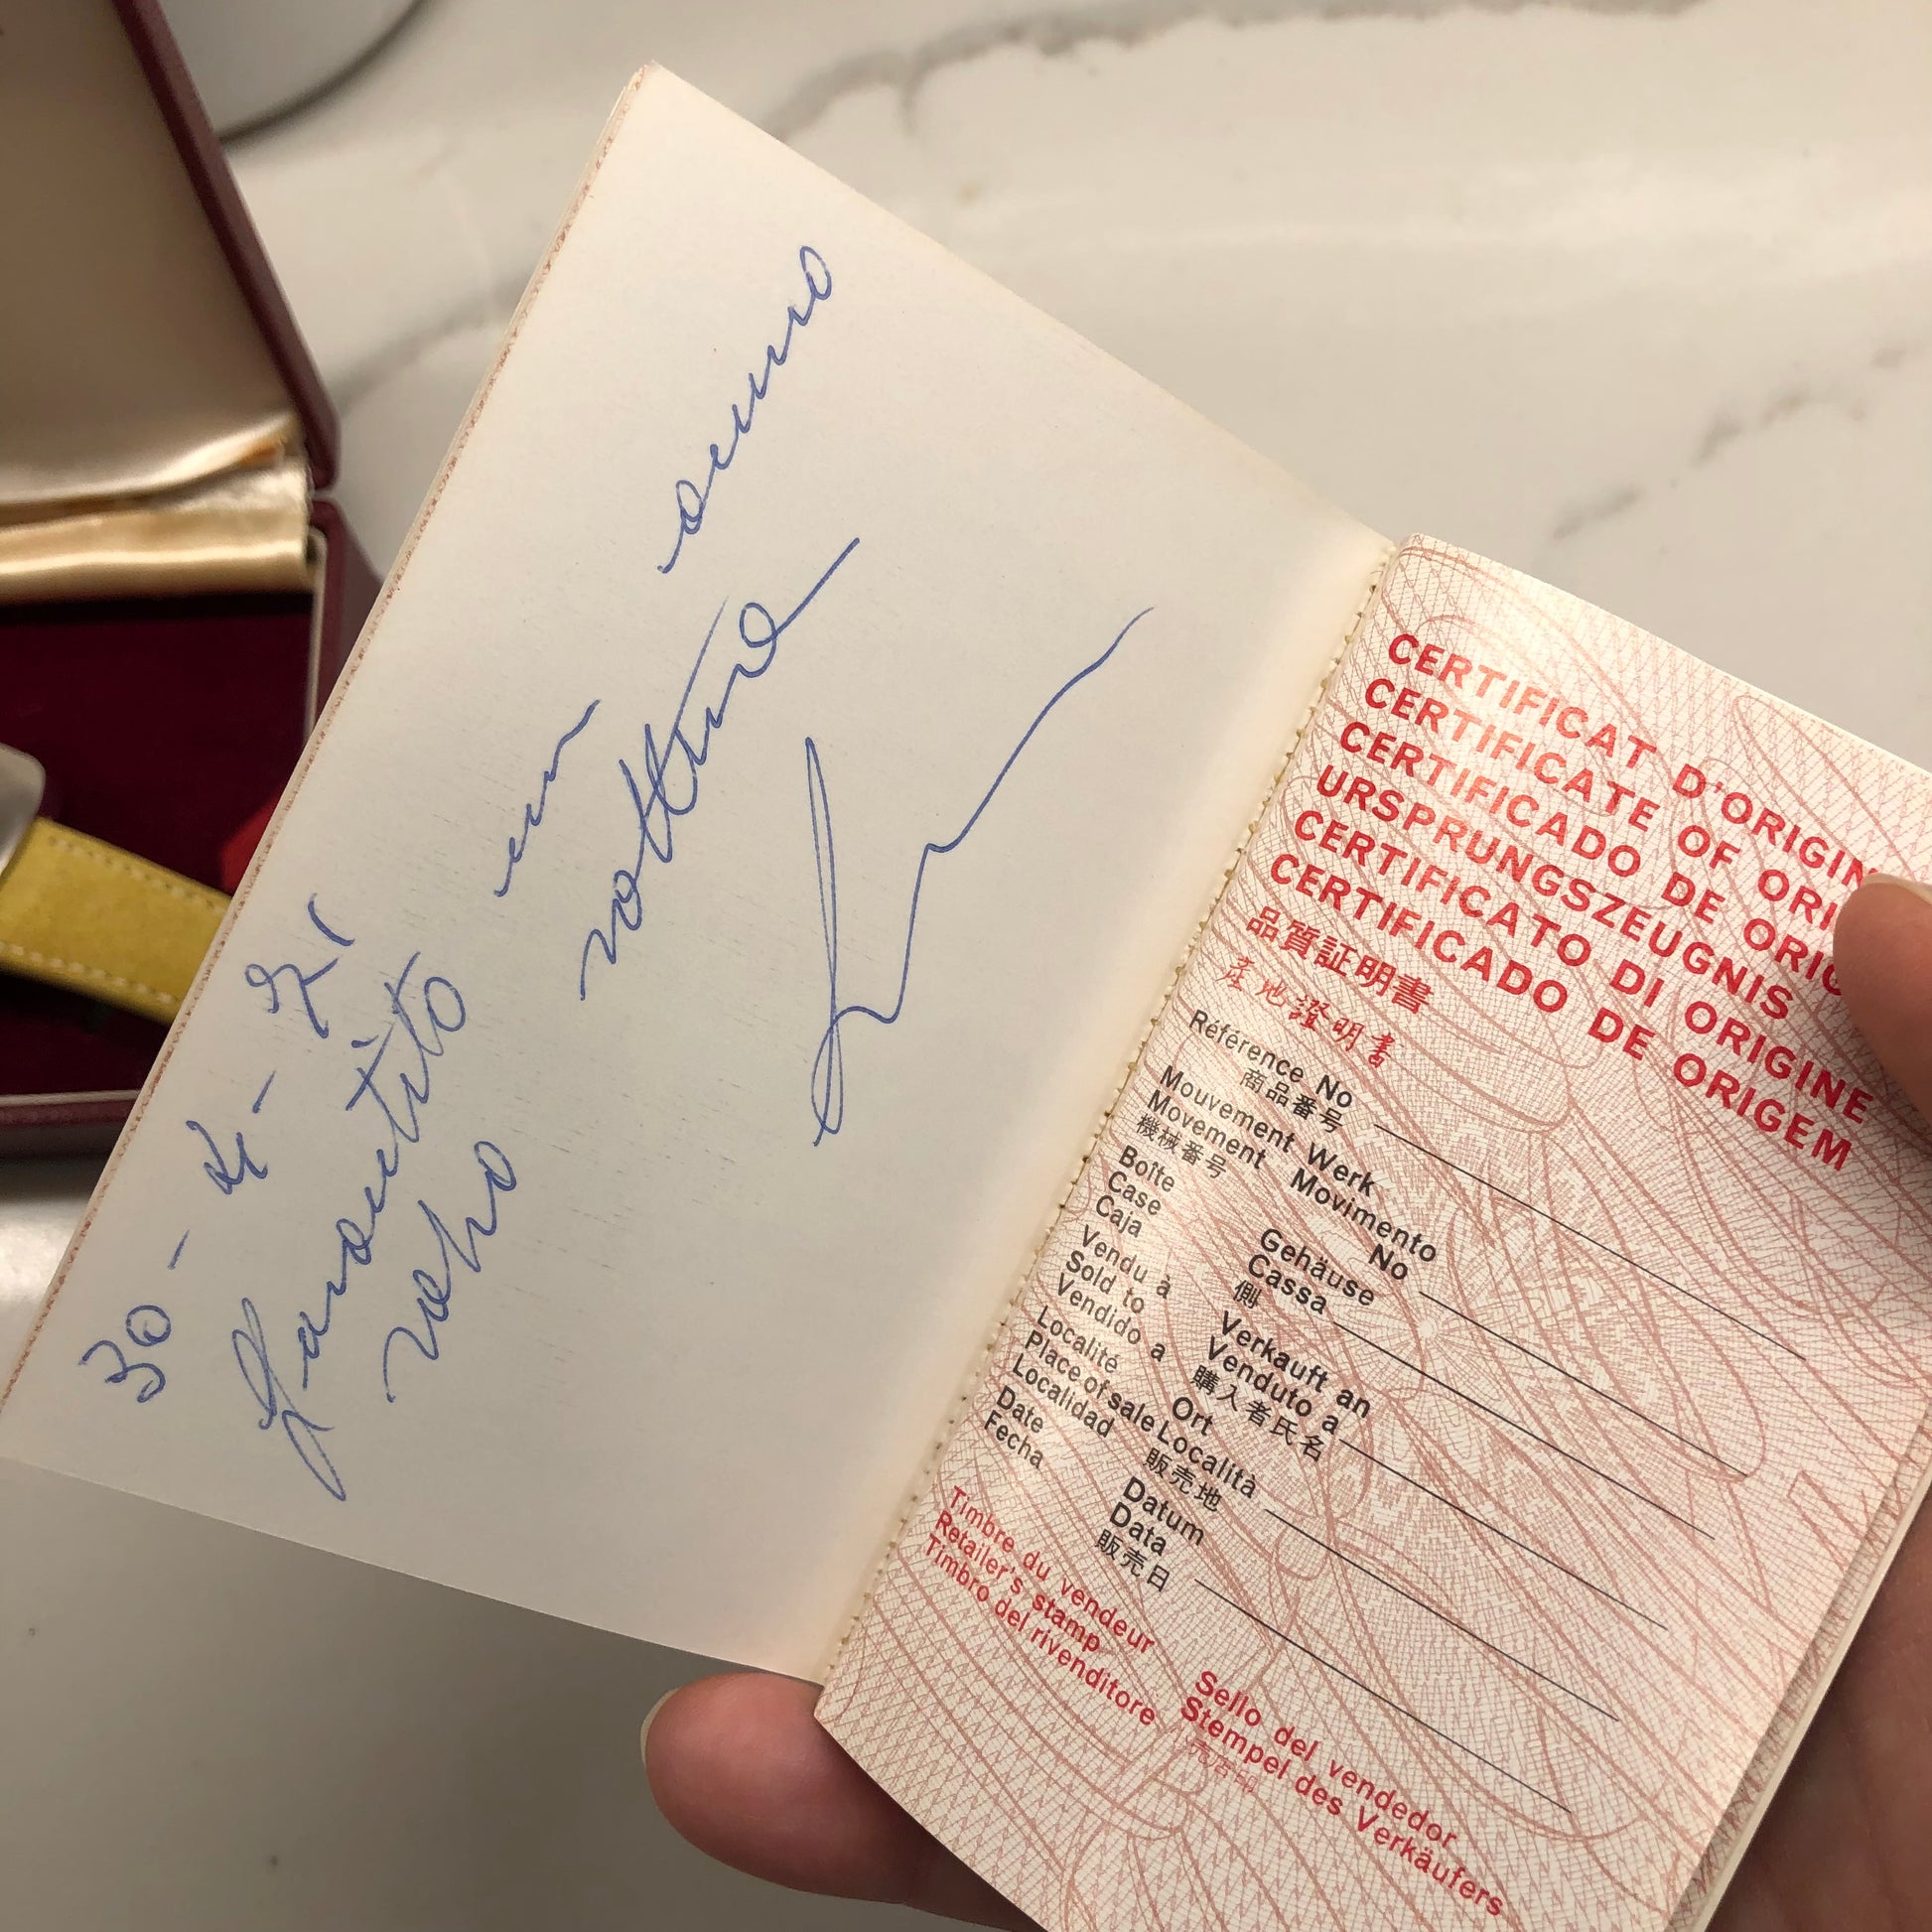 30 - 4 - 71
Garantito un anno
salvo rottura
CERTIFICAT D'ORIGIN
CERTIFICATE OF ORI
CERTIFICADO DE ORIG
URSPRUNGSZEUGNIS
CERTIFICATO DI ORIGINE
CERTIFICADO DE ORIGEM
品質証明書
産地證明書
Référence No
商品番号
Mouvement Werk
Movement Movimento
機械番号 No
Boîte Gehäuse
Case Cassa
Caja 側
Vendu à Verkauft an
Sold to Venduto a
Vendido a 購入者氏名
Localité Ort
Place of sale Località
Localidad 販売地
Date Datum
Fecha Data
販売日
Timbre du vendeur Sello del vendedor
Retailer's stamp Stempel des Verkäufers
Timbro del rivenditore